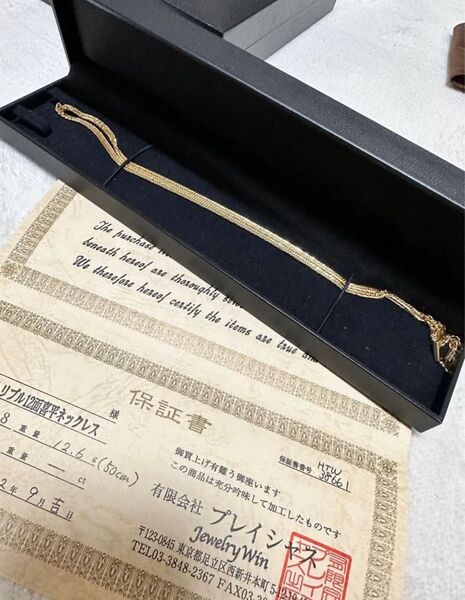 The purchase
beneath hereof are thoroughly
We therefore hereof certify the items are true an
保証書
様
リプル12面喜平ネックレス
8
重量 12.6g(50cm)
重量 ー ct
2年9月吉
保証書番号 HJW
38661
御買上げ有難う御座います
この商品は充分吟味して加工したものです
有限会社 プレイシャス
JewelryWin
〒123-0845 東京都足立区西新井本町5-
TEL03-3848-2367 FAX03-